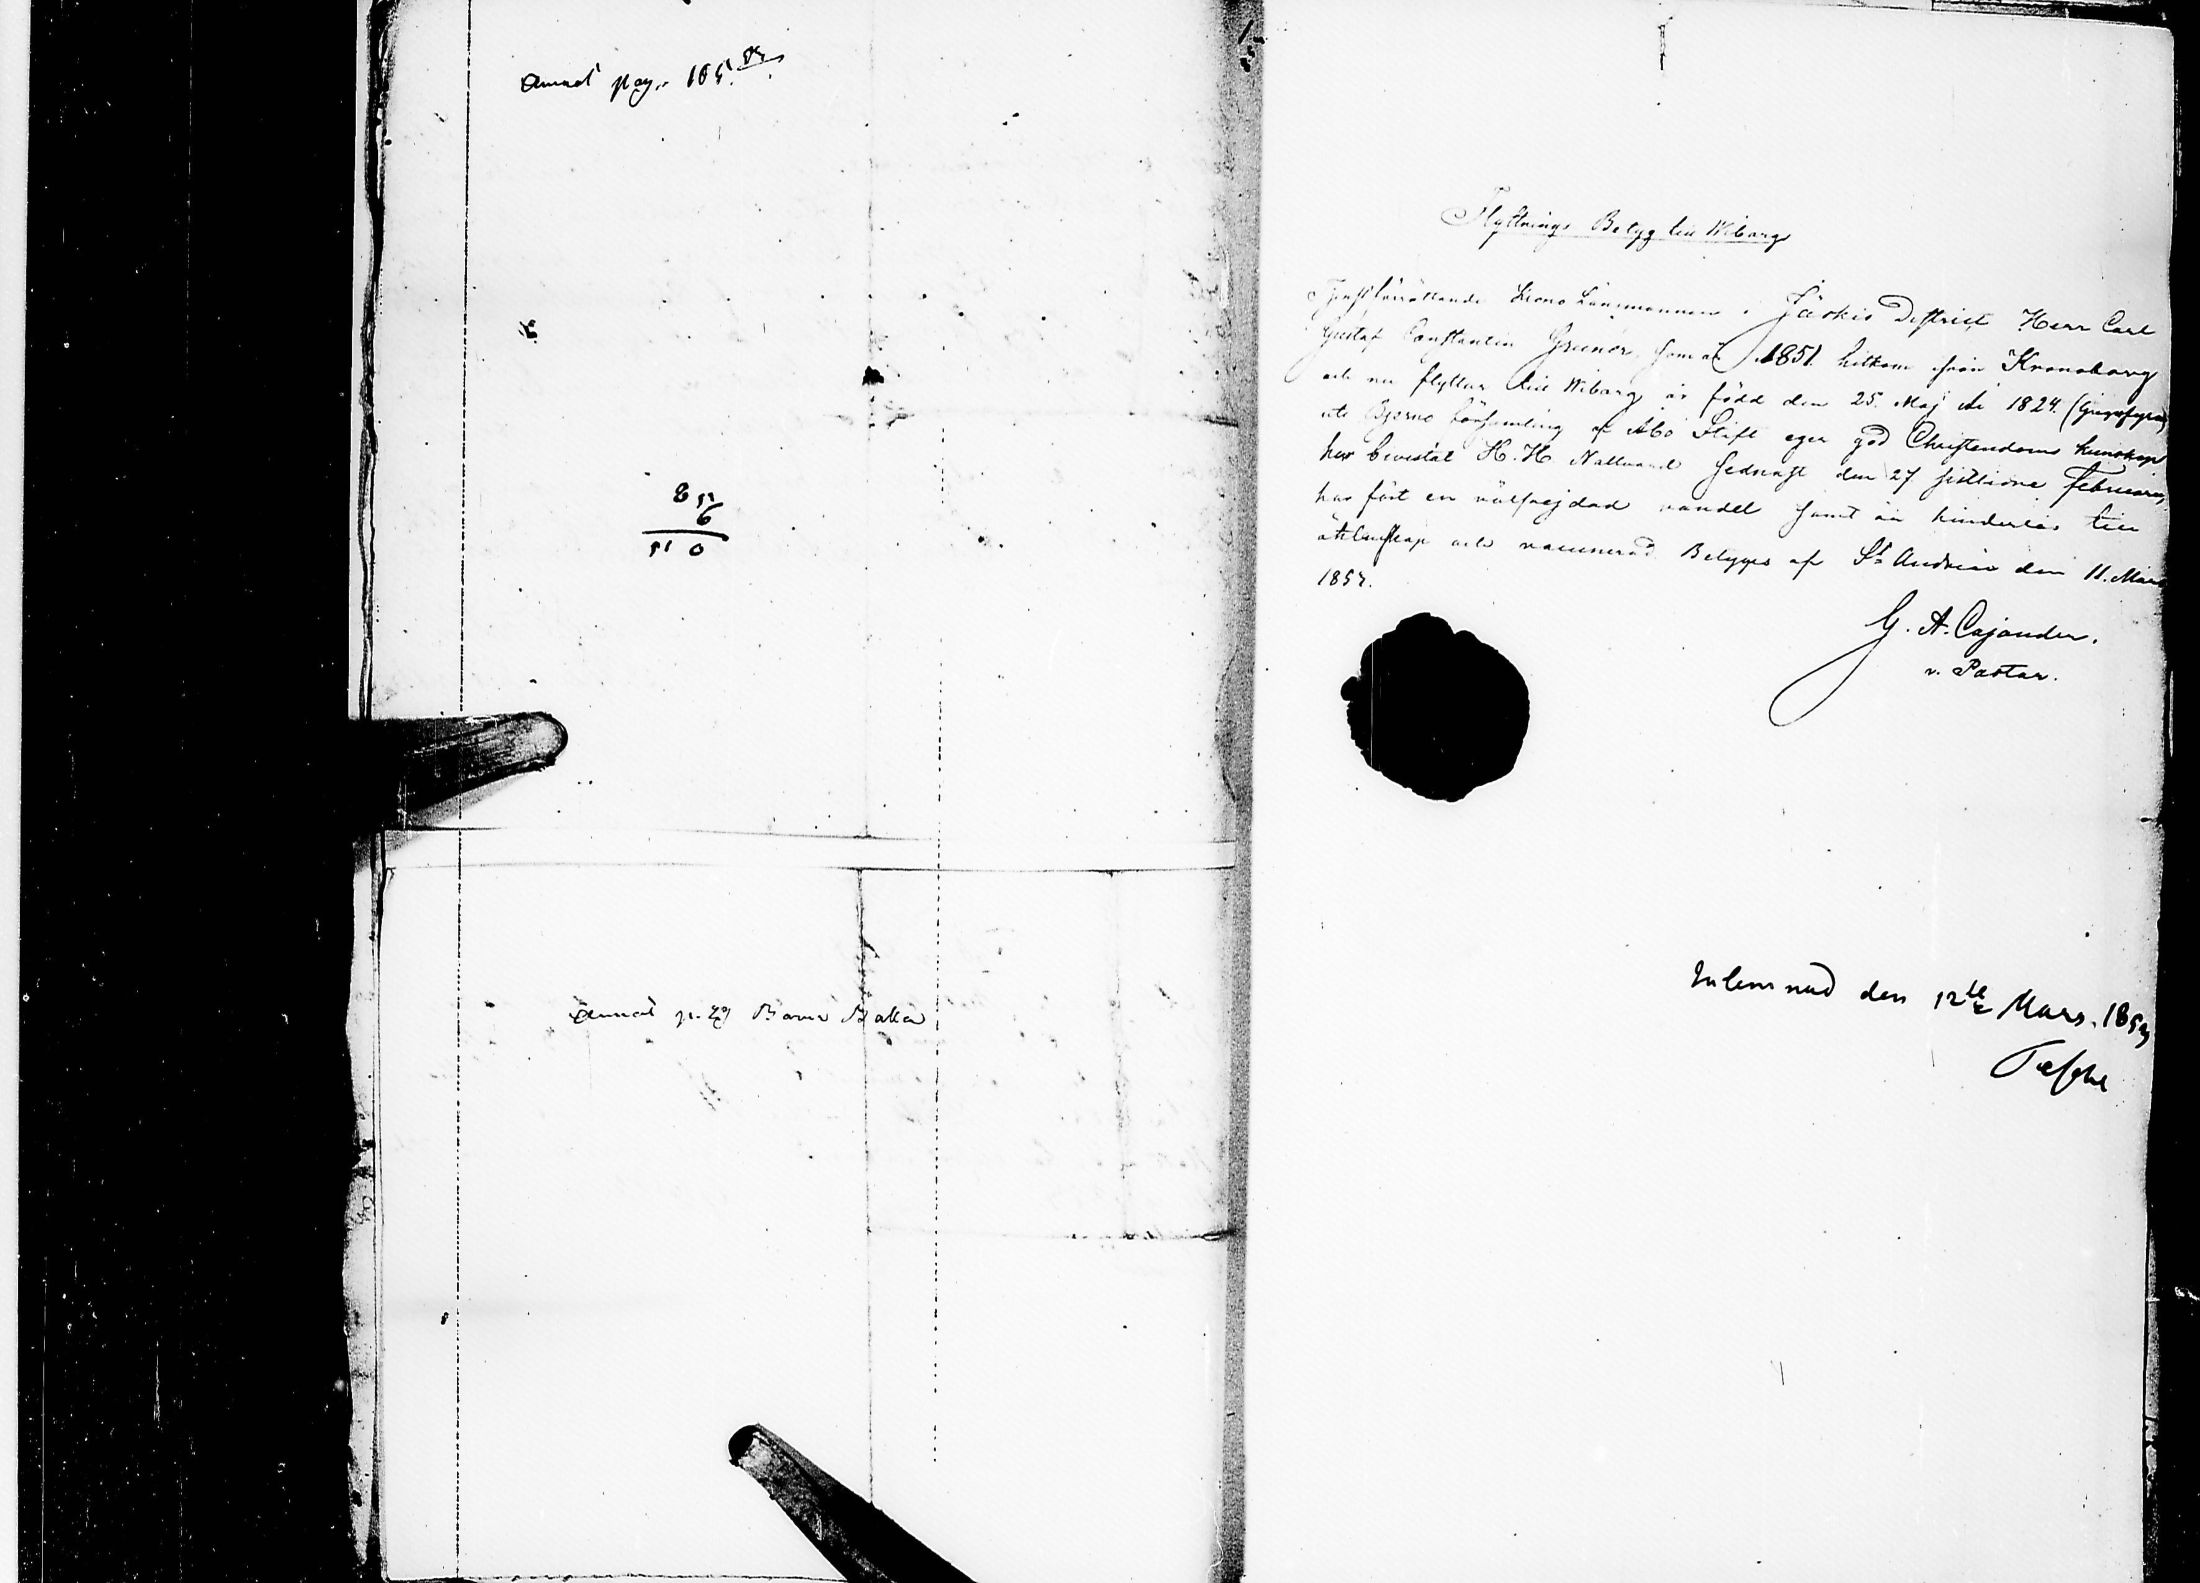 Annot pag. 165.
85
6
510
Annot p. Barne Boken
Flyttnings Betyg till Wiborg
Tjenstförrättande Krono Länsmannen i Jäskis District Herr Carl
Gustaf Constantin som år 1851 hitkom från Kronoborg
och nu flyttar till Wiborg är född den 25 Maj År 1824 (tjugufyra)
uti Bjerno församling af Åbo Stift eger god Christendoms kunskap
har bevistat H. H. Nattvard sednast den 27 sistledne Februarii,
har fört en välfrejdad vandel samt är hinderlös till
äktenskap och vaccinerad. Betygas af St Andreæ den 11. Mars
1853.
G. A. Cajander.
v. Pastor.
Inlemnad den 12te Mars. 1853